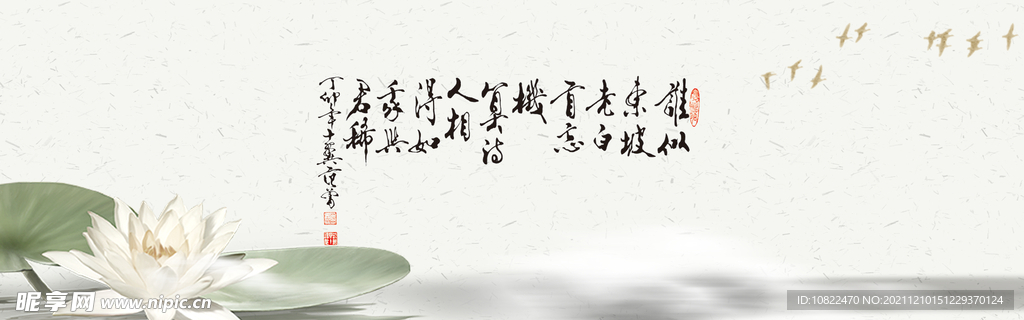 誰似
東坡
老白
首忘
機
算詩
人相
得如
我與
君稀
丁卯年十翼范曾
昵享网 www.nipic.cn
ID:10822470 NO:20211210151229370124